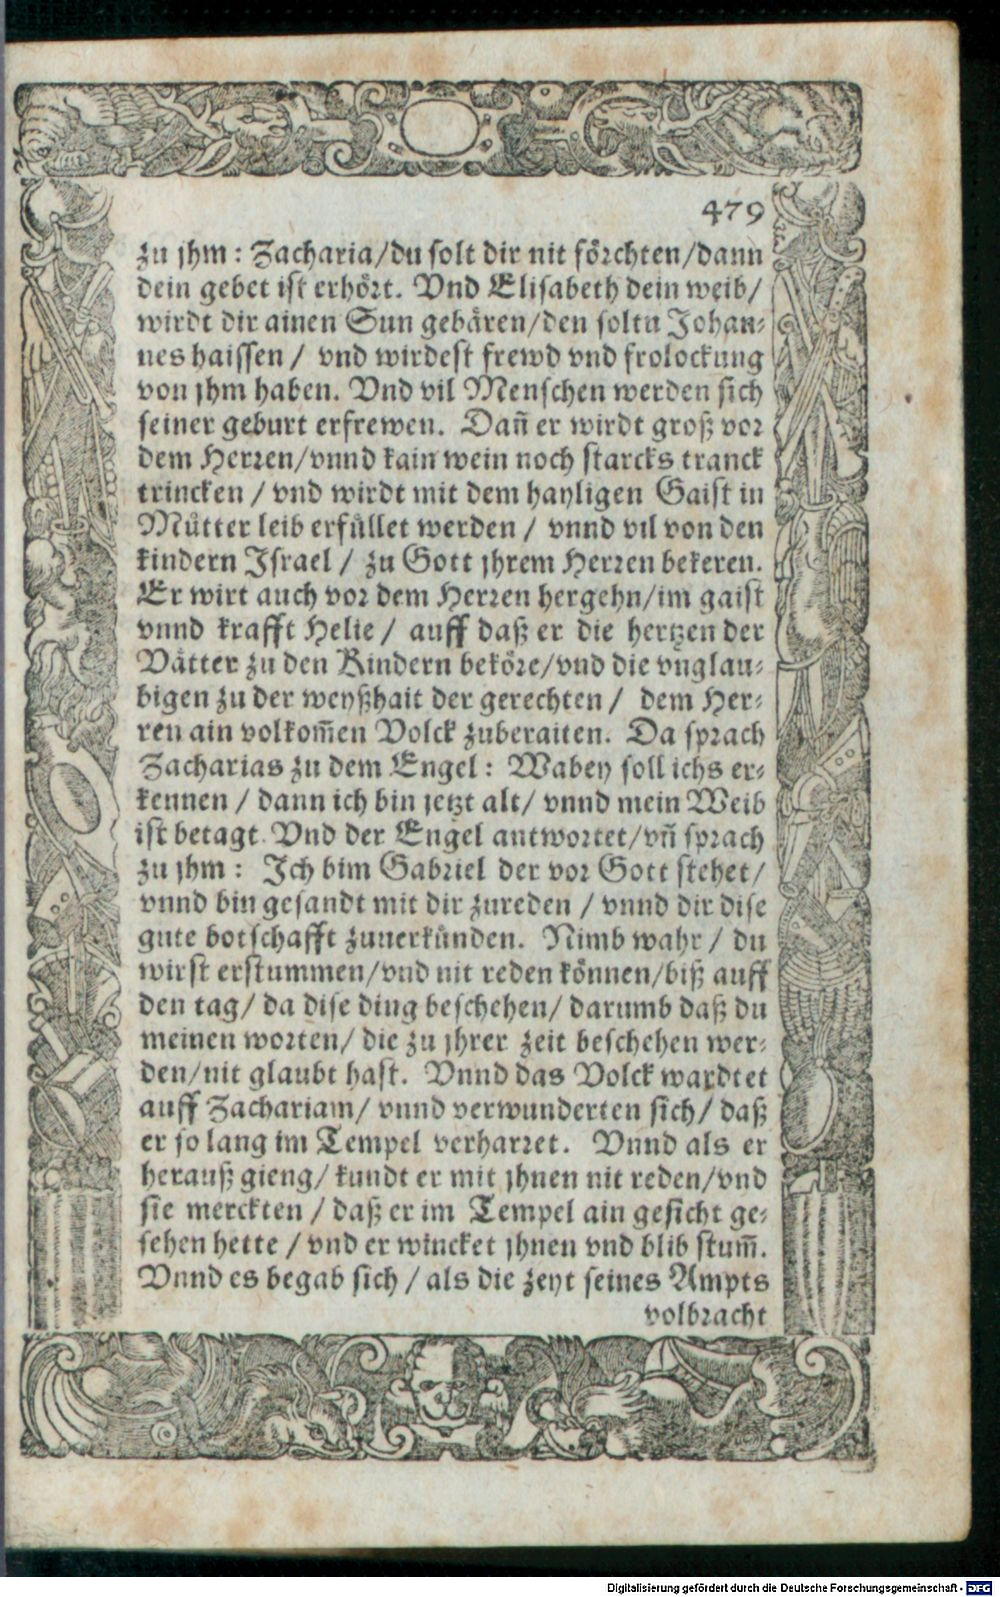 479
zu jhm : Zacharia/du solt dir nit förchten/dann
dein gebet ist erhört. Vnd Elisabeth dein weib/
wirdt dir ainen Sun gebären/den soltu Johan-
nes haissen / vnd wirdest frewd vnd frolockung
von jhm haben. Vnd vil Menschen werden sich
seiner geburt erfrewen. Dañ er wirdt groß vor
dem Herren/vnnd kain wein noch starcks tranck
trincken / vnd wirdt mit dem hayligen Gaist in
Můtter leib erfüllet werden / vnnd vil von den
kindern Israel / zu Gott jhrem Herren bekeren.
Er wirt auch vor dem Herren hergehn/im gaist
vnnd krafft Helie / auff daß er die hertzen der
Vätter zu den Kindern beköre/vnd die vnglau-
bigen zu der weyßhait der gerechten / dem Her-
ren ain volkom̃en Volck zuberaiten. Da sprach
Zacharias zu dem Engel : Wabey soll ichs er-
kennen / dann ich bin jetzt alt/ vnnd mein Weib
ist betagt. Vnd der Engel antwortet/vñ sprach
zu jhm : Ich bim Gabriel der vor Gott stehet/
vnnd bin gesandt mit dir zureden / vnnd dir dise
gute botschafft zuuerkünden. Nimb wahr / du
wirst erstummen/vnd nit reden können/biß auff
den tag/ da dise ding beschehen/ darumb daß du
meinen worten/ die zu jhrer zeit beschehen wer-
den/nit glaubt hast. Vnnd das Volck wardtet
auff Zachariam/ vnnd verwunderten sich/ daß
er so lang im Tempel verharret. Vnnd als er
herauß gieng/ kundt er mit jhnen nit reden/vnd
sie merckten / daß er im Tempel ain gesicht ge-
sehen hette / vnd er wincket jhnen vnd blib stum̃.
Vnnd es begab sich / als die zeyt seines Ampts
volbracht
Digitalisierung gefördert durch die Deutsche Forschungsgemeinschaft - DFG